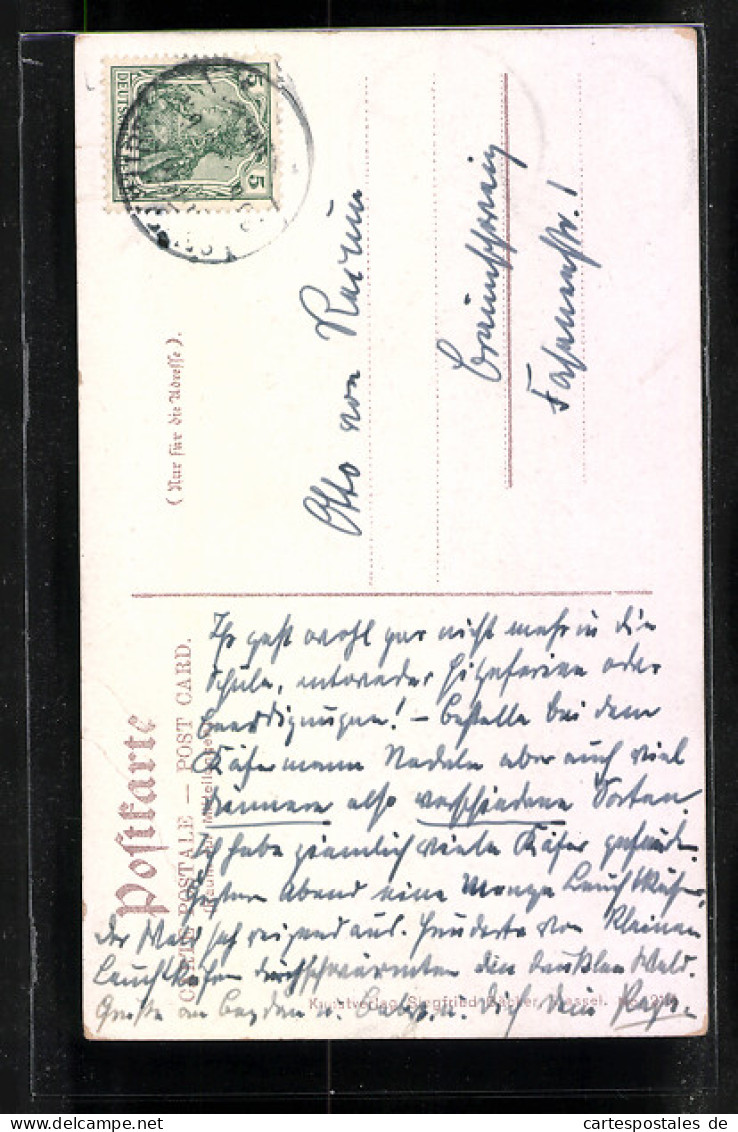 DEUTSCHES
5
5
(Nur für die Adresse).
Otto von
Braunschweig
Fasanenstr. 1
Postkarte
CARTE POSTALE — POST CARD.
Ihr geht wohl gar nicht mehr in die
Schule, entweder Hitzeferien oder
Beerdigungen! – Bestelle bei dem
Käfermann Nadeln aber auch viel
dünnere also verschiedene Sorten.
Ich habe ziemlich viele Käfer
Gestern Abend eine Menge Leuchtkäfer,
der Wald sah reizend aus. Hunderte von kleinen
Leuchtkäfern durchschwärmten den dunklen Wald.
Grüße an u. Dich Dein
Kunstverlag Siegfried Cassel.
cartespostales de